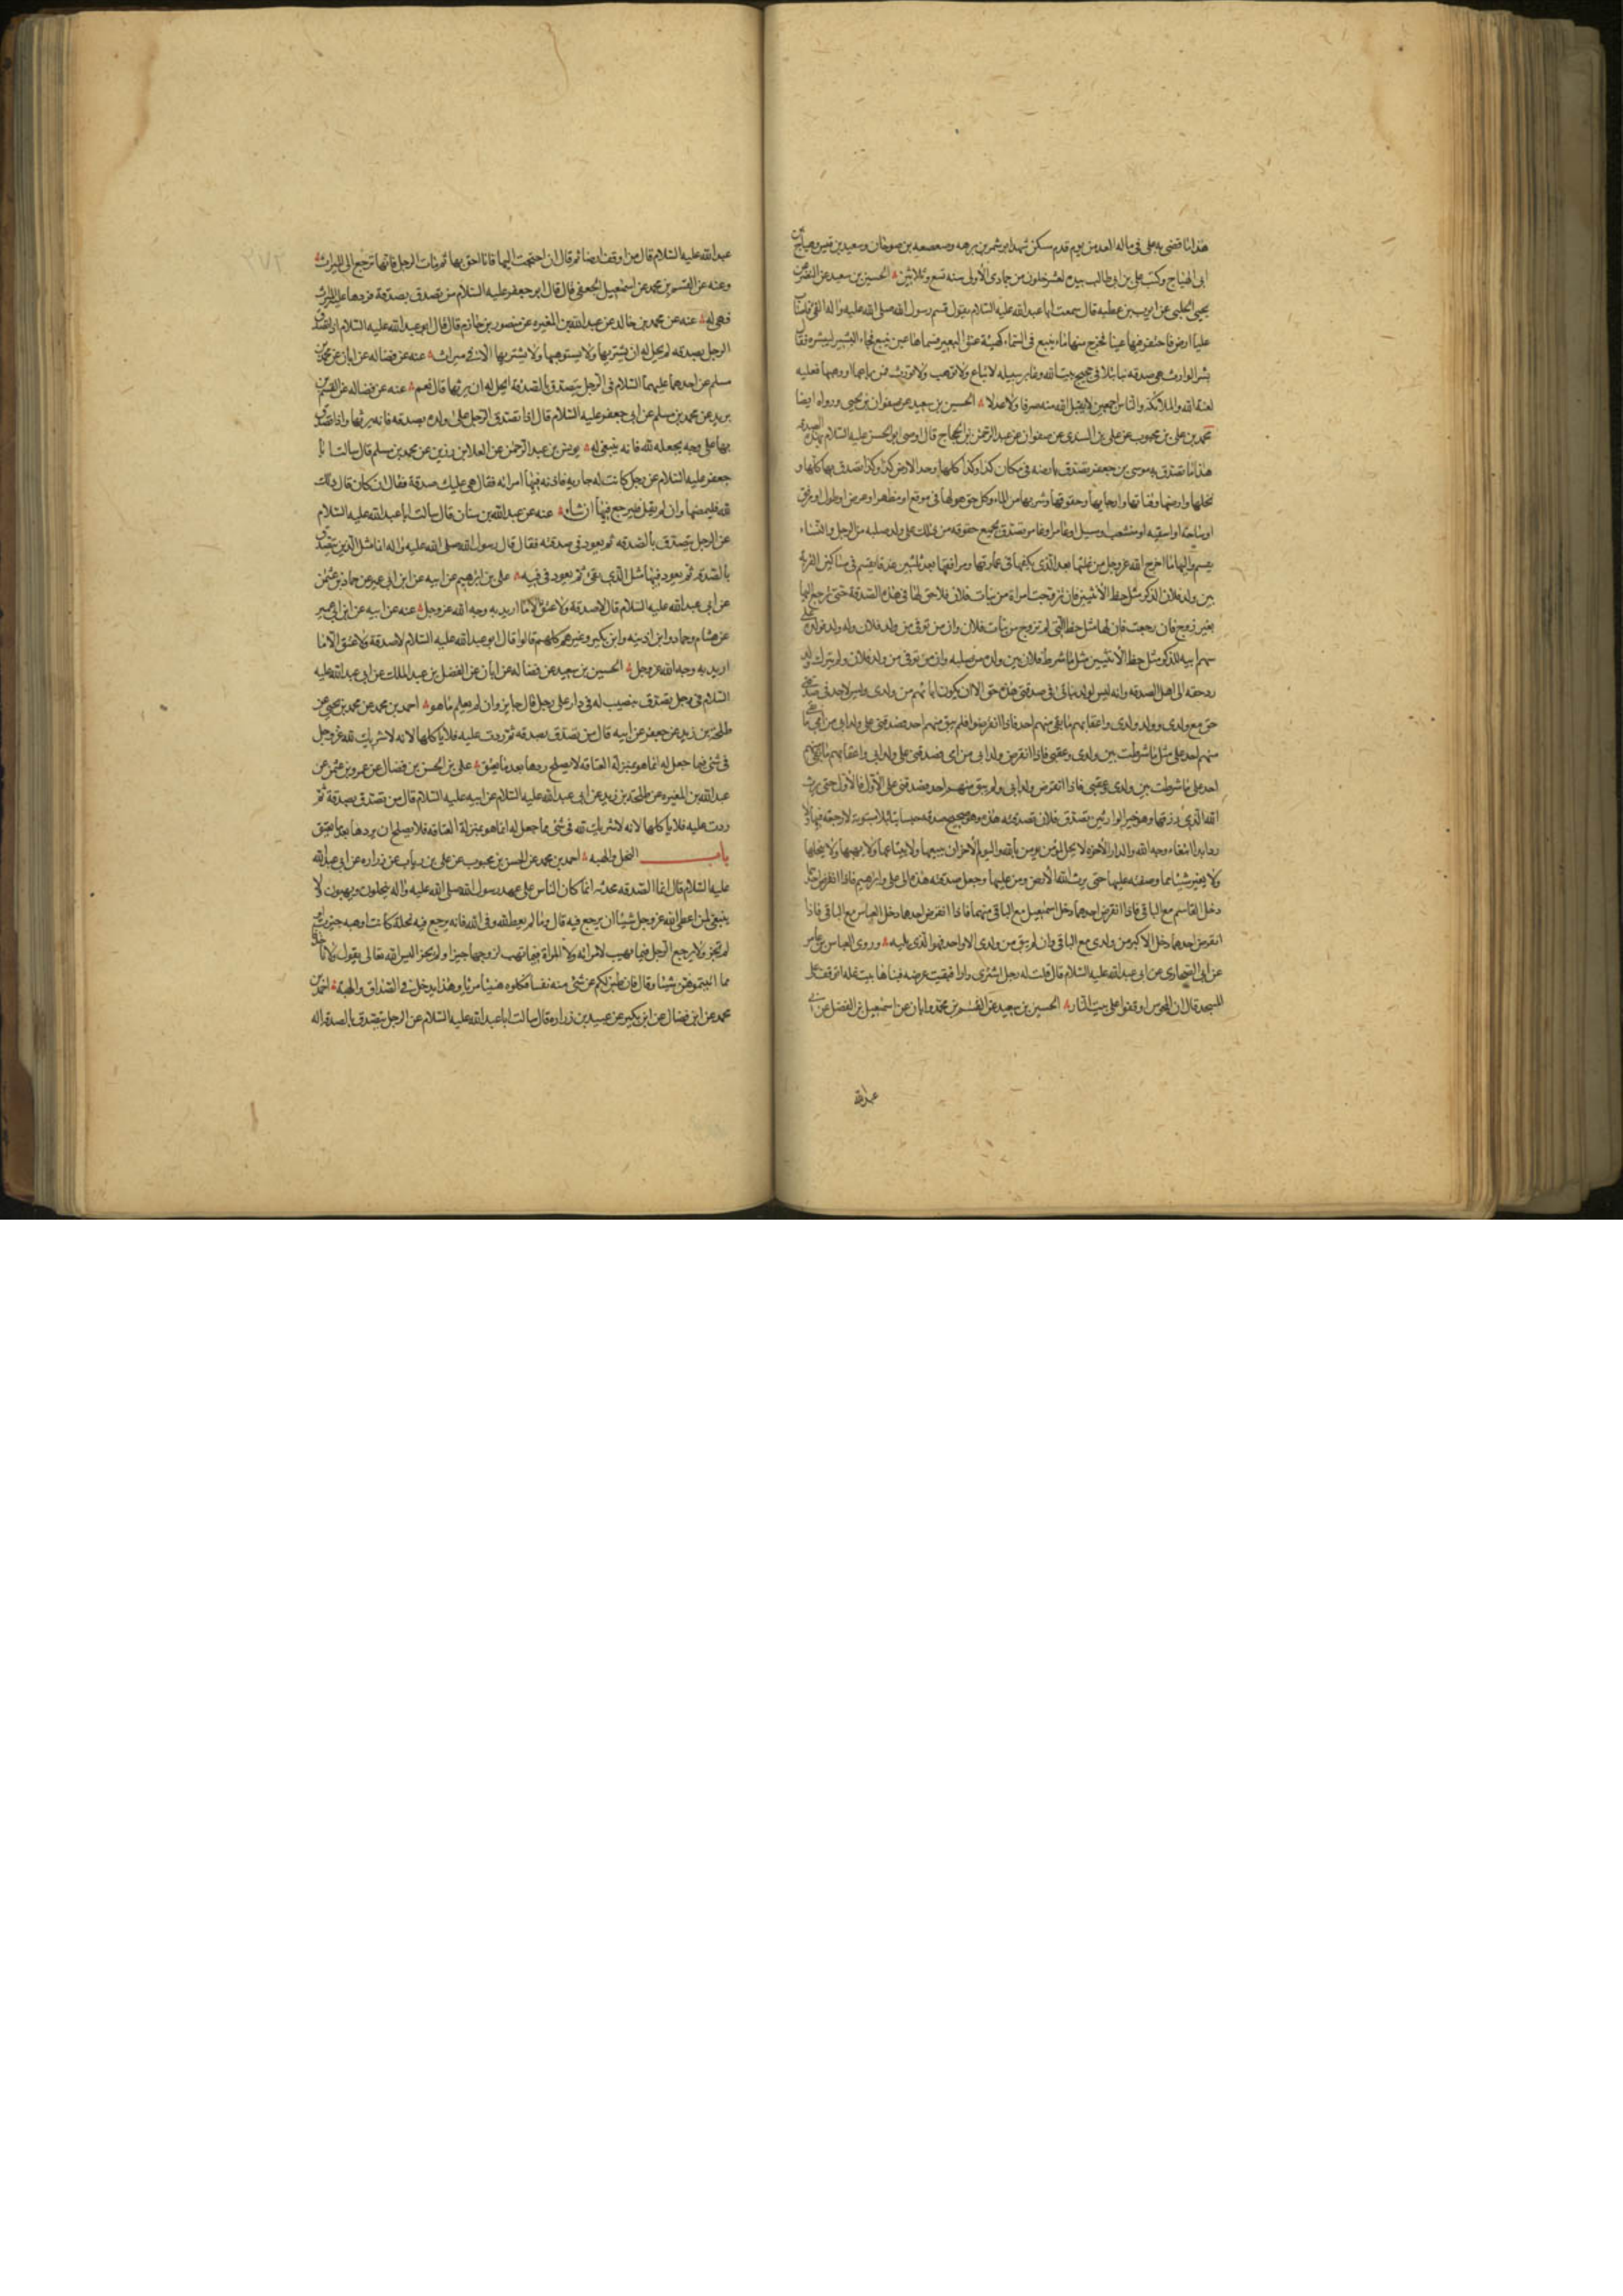 هذا ما قضى به على فى ماله الغد من يوم قدم مسكن شهد ابو شمر بن ابرهه وصعصعه بن صوحان وسعيد بن قيس وهياج بن
ابى الهياج وكتب على بن ابى طالب بيده لعشر خلون من جمادى الأولى سنه تسع وثلاثين الحسين بن سعيد عن النضر عن
يحيى الحلبى عن ايوب بن عطيه قال سمعت ابا عبد الله عليه السلام يقول قسم رسول الله صلى الله عليه واله الفئ فاصاب
عليا ارض فاحتفر فيها عينا فخرج منها ماء ينبع فى السماء كهيئة عنق البعير فسماها عين ينبع فجاء البشير ليبشره فقال
بشر الوارث هى صدقه بتا بتلا فى حجيج بيت الله وعابر سبيله لا تباع ولا توهب ولا تورث فمن باعها او وهبها فعليه
لعنة الله والملائكة والناس اجمعين لا يقبل الله منه صرفا ولا عدلا الحسين بن سعيد عن صفوان بن يحيى ورواه ايضا
محمد بن على بن محبوب عن على بن السندى عن صفوان عن عبد الرحمن بن الحجاج قال اوصى ابو الحسن عليه السلام بهذه الصدقه
هذا ما تصدق به موسى بن جعفر تصدق بارضه فى مكان كذا وكذا كلها وحد الارض كذا وكذا تصدق بها كلها و
نخلها وارضها وقناتها وارجايها وحقوقها وشربها من الماء وكل حق هو لها فى مرفع او مظهر او عرض او طول او مرفق
او ساحة او اسقيه او متشعب او مسيل او عامر او غامر تصدق بجميع حقوقه من ذلك على ولد صلبه من الرجل والنساء
يقسم واليها ما اخرج الله عز وجل من غلتها بعد الذى يكفيها فى عمارتها ومرافقها بعد ثلثين عذقا يقسم فى مساكين القرية
بين ولد فلان للذكر مثل حظ الأنثيين فان تزوجت امراة من بنات فلان فلا حق لها فى هذه الصدقة حتى ترجع اليها
بغير زوج فان رجعت فان لها مثل حظ التى لم تزوج من بنات فلان وان من توفى من ولد فلان وله ولد فولده على
سهم ابيه للذكر مثل حظ الأنثيين مثل ما شرط فلان بين ولده من صلبه وان من توفى من ولد فلان ولم يترك ولدا
رد حقه الى اهل الصدقه وانه ليس لولد بناتى فى صدقتى هذه حق الا ان يكون اباؤهم من ولدى وليس لاحد فى صدقتى
حق مع ولدى وولد ولدى واعقابهم ما بقى منهم احد فاذا انقرضوا فلم يبق منهم احد فصدقتى على ولد ابى من امى ما بقى
منهم احد على مثل ما شرطت بين ولدى وعقبى فاذا انقرض ولد ابى من امى فصدقتى على ولد ابى واعقابهم ما بقى منهم
احد على ما شرطت بين ولدى وعقبى فاذا انقرض ولد ابى ولم يبق منهم احد فصدقتى على الأول فالأول حتى يرث
الله الذى رزقها وهو خير الوارثين تصدق فلان بصدقته هذه وهو صحيح صدقه حبسا بتا بتلا مبتوتة لا رجعة فيها ولا
رد ابدا ابتغاء وجه الله والدار الأخره لا يحل لمؤمن يؤمن بالله واليوم الأخر ان يبيعها ولا يبتاعها ولا يهبها ولا ينحلها
ولا يغير شيئا مما وصفته عليها حتى يرث الله الأرض ومن عليها وجعل صدقته هذه الى على وابراهيم فاذا انقرض احدهما
دخل القاسم مع الباقى فاذا انقرض احدهما دخل اسمعيل مع الباقى منهما فاذا انقرض احدهما دخل العباس مع الباقى فاذا
انقرض احدهما دخل الاكبر من ولدى مع الباقى وان لم يبق من ولدى الا واحد فهو الذى يليه وروى العباس بن عامر
عن ابى الصحارى عن ابى عبد الله عليه السلام قال قلت له رجل اشترى دارا فبقيت عرصه فبناها بيت غله اتوقف على
المسجد قال ان المجوس اوقفوا على بيت النار الحسين بن سعيد عن القسم بن محمد وابان عن اسمعيل بن الفضل عن ابى
عبد الله
عبد الله عليه السلام قال من اوقف ارضا ثم قال ان احتجت اليها فانا احق بها ثم مات الرجل فانها ترجع الى الميراث
وعنه عن القسم بن محمد عن اسمعيل الجعفى قال قال ابو جعفر عليه السلام من تصدق بصدقة فردها عليه الميراث
فهى له عنه عن محمد بن خالد عن عبد الله بن المغيره عن منصور بن حازم قال قال ابو عبد الله عليه السلام اذا تصدق
الرجل بصدقه لم يحل له ان يشتريها ولا يستوهبها ولا يشتريها الا فى ميراث عنه عن فضاله عن ابان عن محمد بن
مسلم عن احدهما عليهما السلام فى الرجل يتصدق بالصدقة ايحل له ان يرثها قال نعم عنه عن فضاله عن القسم بن
بريد عن محمد بن مسلم عن ابى جعفر عليه السلام قال اذا تصدق الرجل على ولده بصدقه فانه يرثها واذا تصدق
بها على وجه يجعله لله فانه ينبغى له يونس بن عبد الرحمن عن العلا بن رزين عن محمد بن مسلم قال سالت ابا
جعفر عليه السلام عن رجل كانت له جاريه فاذته فيها امراته فقال هى عليك صدقة فقال ان كان قال ذلك
لله فليمضها وان لم يقل فليرجع فيها ان شاء عنه عن عبد الله بن سنان قال سالت ابا عبد الله عليه السلام
عن الرجل يتصدق بالصدقه ثم يعود فى صدقته فقال قال رسول الله صلى الله عليه واله انما مثل الذين يتصدق
بالصدقه ثم يعود فيها مثل الذى يقئ ثم يعود فى قيئه على بن ابرهيم عن ابيه عن ابن ابى عمير عن حماد بن عثمن
عن ابى عبد الله عليه السلام قال لا صدقة ولا عتق الا ما اريد به وجه الله عز وجل عنه عن ابيه عن ابن ابى عمير
عن هشام وحماد وابن اذينه وابن بكير وغيرهم كلهم قالوا قال ابو عبد الله عليه السلام لا صدقة ولا عتق الا ما
اريد به وجه الله عز وجل الحسين بن سعيد عن فضاله عن ابان عن الفضل بن عبد الملك عن ابى عبد الله عليه
السلام فى رجل تصدق بنصيب له فى دار على رجل قال جايز وان لم يعلم ما هو احمد بن محمد عن محمد بن يحيى عن
طلحة بن زيد عن جعفر عن ابيه قال من تصدق بصدقه ثم ردت عليه فلا ياكلها لانه لا شريك لله عز وجل
فى شئ مما جعل له انما هو بمنزلة العتاقه لا يصلح ردها بعد ما يعتق على بن الحسن بن فضال عن عمرو بن عثمن عن
عبد الله بن المغيره عن طلحة بن زيد عن ابى عبد الله عليه السلام عن ابيه عليه السلام قال من تصدق بصدقة ثم
ردت عليه فلا ياكلها لانه لا شريك لله فى شئ مما جعل له انما هو بمنزلة العتاقه فلا يصلح ان يردها بعد ما يعتق
باب النحل والهبه احمد بن محمد عن الحسن بن محبوب عن على بن رياب عن زراره عن ابى عبد الله
عليه السلام قال انما الصدقه محدثه انما كان الناس على عهد رسول الله صلى الله عليه واله ينحلون ويهبون لا
ينبغى لمن اعطى الله عز وجل شيئا ان يرجع فيه قال وما لم يعط لله وفى الله فانه يرجع فيه نحلة كانت او هبه حيزت او
لم تحز ولا يرجع الرجل فيما يهب لامراته ولا المراة فيما تهب لزوجها حيز او لم يحز اليس الله تعالى يقول ولا تاخذوا
مما اتيتموهن شيئا وقال فان طبن لكم عن شئ منه نفسا فكلوه هنيئا مريئا وهذا يدخل فى الصداق والهبة احمد بن
محمد عن ابن فضال عن ابن بكير عن عبيد بن زراره قال سالت ابا عبد الله عليه السلام عن الرجل يتصدق بالصدقه اله